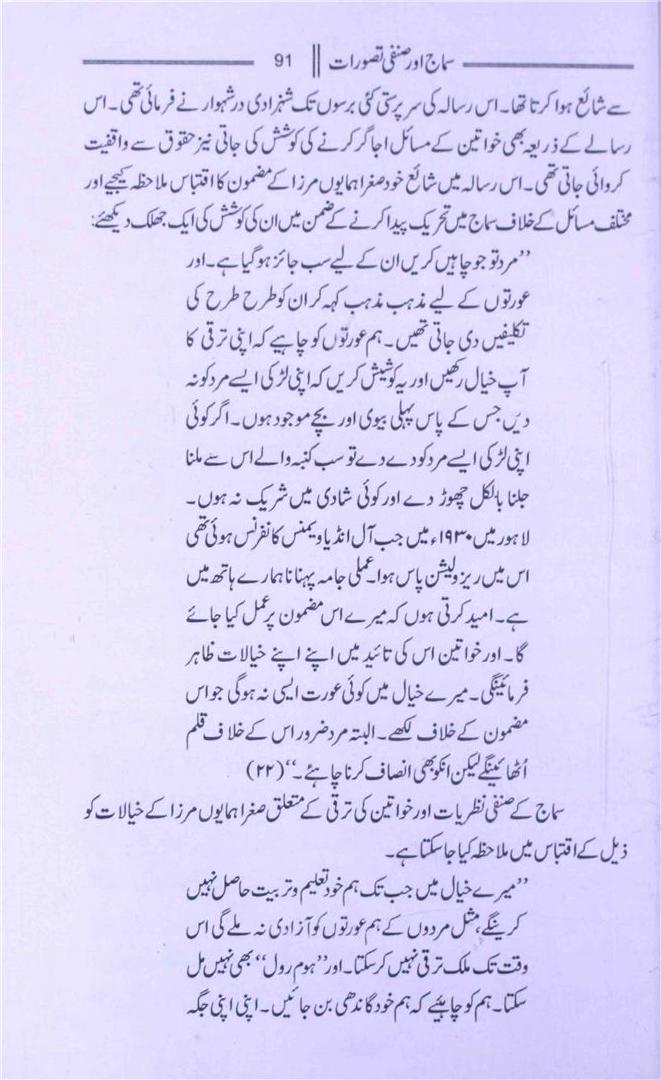 سماج اور صنفی تصورات || 91
سے شائع ہوا کرتا تھا۔ اس رسالہ کی سر پرستی کئی برسوں تک شہزادی درشہوار نے فرمائی تھی۔ اس
رسالے کے ذریعہ بھی خواتین کے مسائل اجاگر کرنے کی کوشش کی جاتی نیز حقوق سے واقفیت
کروائی جاتی تھی۔ اس رسالہ میں شائع خود صغرا ہمایوں مرزا کے مضمون کا اقتباس ملاحظہ کیجیے اور
مختلف مسائل کے خلاف سماج میں تحریک پیدا کرنے کے ضمن میں ان کی کوشش کی ایک جھلک دیکھئے:
”مرد تو جو چاہیں کریں ان کے لیے سب جائز ہوگیا ہے۔ اور
عورتوں کے لیے مذہب مذہب کہہ کر ان کو طرح طرح کی
تکلیفیں دی جاتی تھیں۔ ہم عورتوں کو چاہیے کہ اپنی ترقی کا
آپ خیال رکھیں اور یہ کوشیش کریں کہ اپنی لڑکی ایسے مرد کو نہ
دیں جس کے پاس پہلی بیوی اور بچے موجود ہوں۔ اگر کوئی
اپنی لڑکی ایسے مرد کو دے دے تو سب کنبہ والے اس سے ملنا
جلنا بالکل چھوڑ دے اور کوئی شادی میں شریک نہ ہوں۔
لاہور میں ۱۹۳۰ء میں جب آل انڈیا ویمنس کانفرنس ہوئی تھی
اس میں ریزولیشن پاس ہوا۔ عملی جامہ پہنانا ہمارے ہاتھ میں
ہے۔ امید کرتی ہوں کہ میرے اس مضمون پر عمل کیا جائے
گا۔ اور خواتین اس کی تائید میں اپنے اپنے خیالات ظاہر
فرمائینگی۔ میرے خیال میں کوئی عورت ایسی نہ ہوگی جو اس
مضمون کے خلاف لکھے۔ البتہ مرد ضرور اس کے خلاف قلم
اُٹھائینگے لیکن انکو بھی انصاف کرنا چاہئے۔“ (۲۲)
سماج کے صنفی نظریات اور خواتین کی ترقی کے متعلق صغرا ہمایوں مرزا کے خیالات کو
ذیل کے اقتباس میں ملاحظہ کیا جا سکتا ہے۔
”میرے خیال میں جب تک ہم خود تعلیم و تربیت حاصل نہیں
کرینگے، مثل مردوں کے ہم عورتوں کو آزادی نہ ملے گی اس
وقت تک ملک ترقی نہیں کر سکتا۔ اور ”ہوم رول“ بھی نہیں مل
سکتا۔ ہم کو چاہئیے کہ ہم خود گاندھی بن جائیں۔ اپنی اپنی جگہ